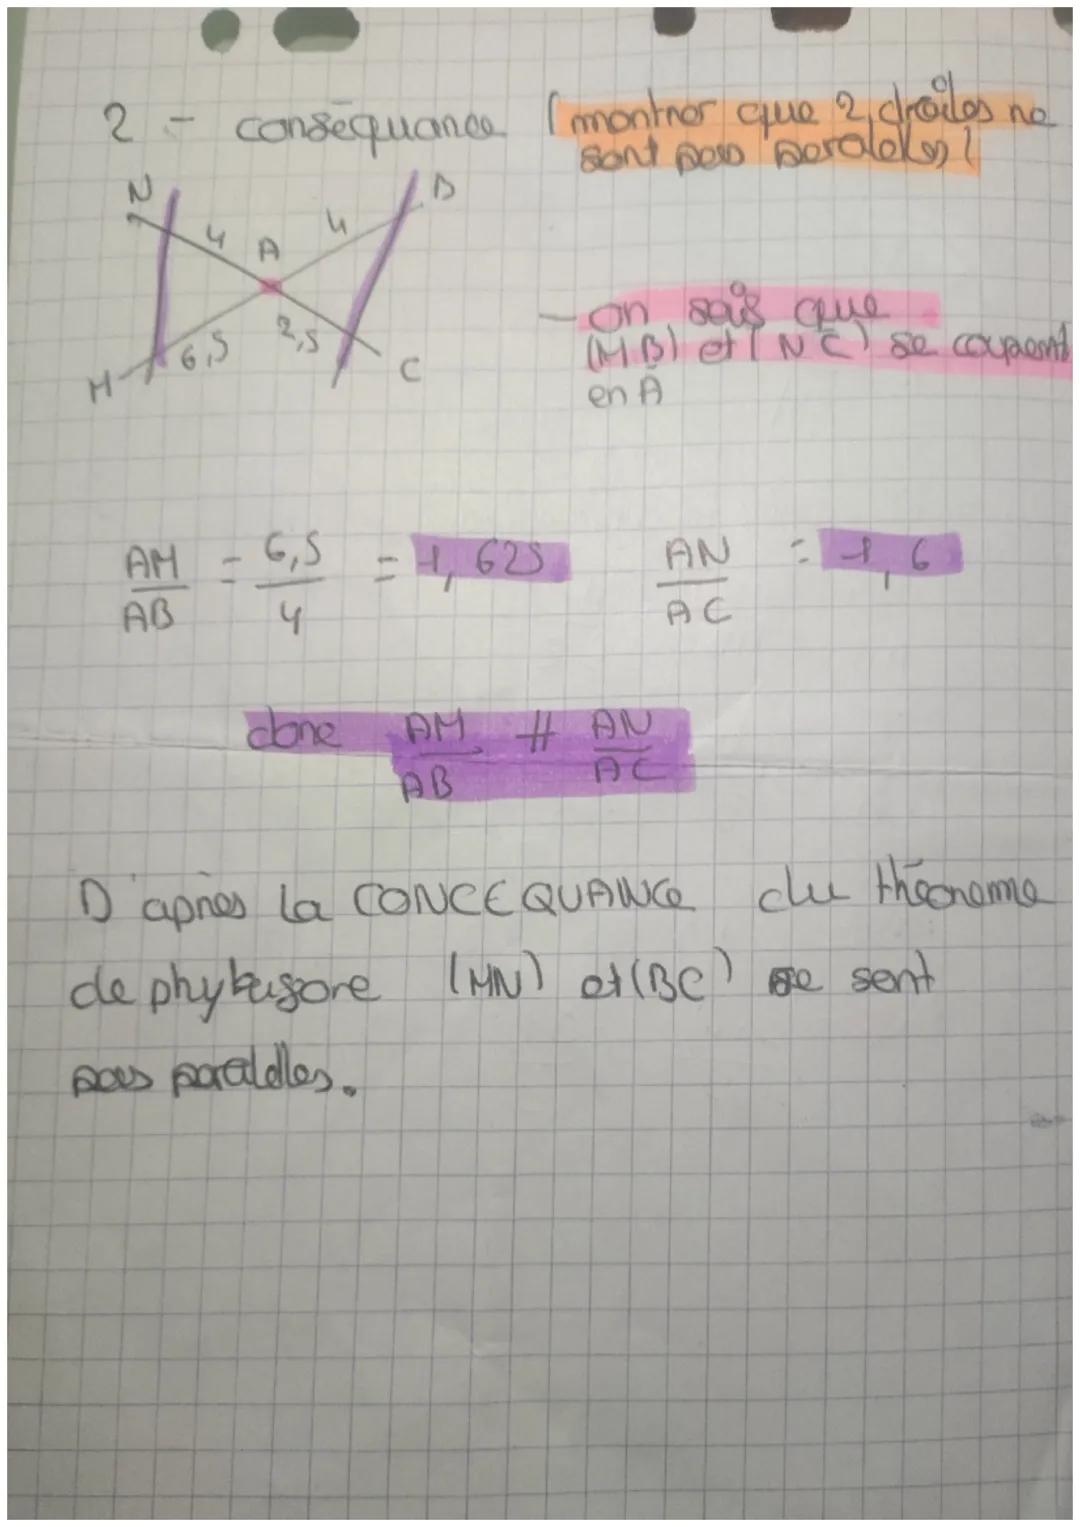 2 - conséquance (montrer que 2 droites ne
sont pas paralelles)
N
B
4
A
4
6,5
2,5
M
C
- on sais que
(MB) et (NC) se coupent
en A
AM/AB = 6,5/4 = 1,625 AN/AC = 1,6
donc AM/AB ≠ AN/AC
D'après la CONCEQUANCE du théoreme
de phytagore (MN) et (BC) ne sent
pas paralelles.